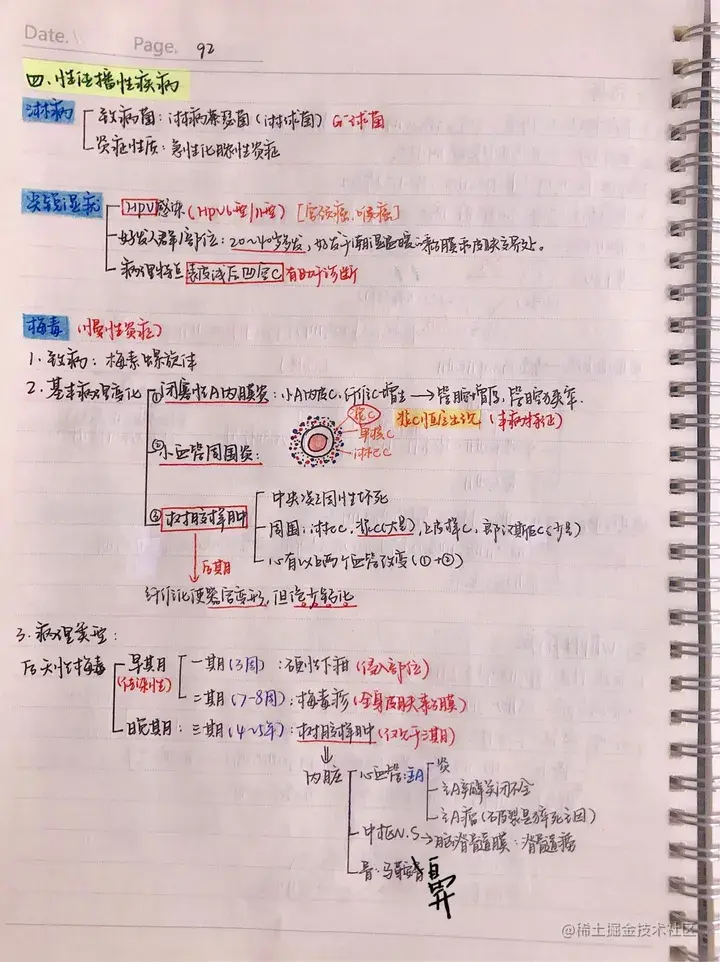 Date.
Page. 92
四.性传播性疾病
淋病
致病菌:淋病奈瑟菌(淋球菌) G⁻球菌
炎症性质:急性化脓性炎症
尖锐湿疣
HPV感染(HPV6型/11型) [宫颈癌.喉癌]
好发人群/部位:20~40岁多发,好发于潮湿温暖的黏膜和皮肤交界处。
病理特点 表皮浅层凹空C 有助于诊断
梅毒 (慢性炎症)
1.致病:梅毒螺旋体
2.基本病理变化
①闭塞性A内膜炎:小A内皮C,纤维C增生→管壁增厚,管腔狭窄.
②小血管周围炎:
浆C
单核C
淋巴C
浆C恒定出现 (本病特征)
③树胶样肿
中央凝固性坏死
周围:淋巴C,浆C(大量),上皮样C,郎汉斯巨C(少量)
必有以上两个血管改变(①+②)
后期
纤维化使器官变形,但绝少钙化
3.病理类型:
后天性梅毒
早期 (传染性)
一期(3周):硬性下疳(侵入部位)
二期(7-8周):梅毒疹(全身皮肤黏膜)
晚期:三期(4~5年):树胶样肿(仅见于三期)
内脏
心血管:主A
炎
主A瓣膜关闭不全
主A瘤(破裂是猝死主因)
中枢N.S→脑脊髓膜:脊髓痨
骨:马鞍鼻
鼻
@稀土掘金技术社区